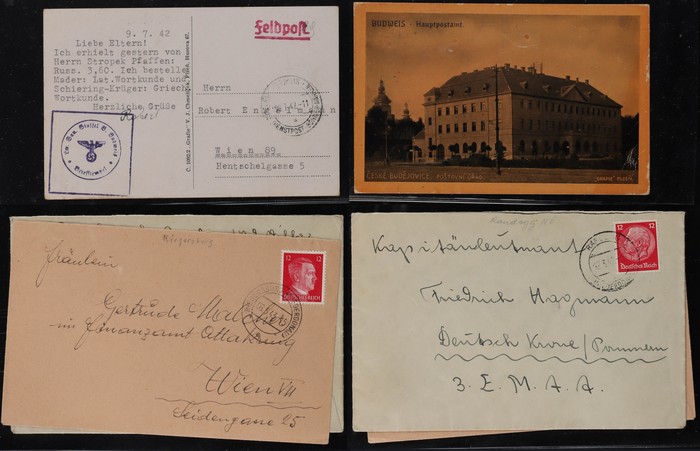 9. 7. 42
Liebe Eltern!
Ich erhielt gestern von
Herrn Stropek Pfaffen:
Russ. 3,60. Ich bestelle
Mader: Lat.Wortkunde und
Schiering-Krüger: Griech
Wortkunde.
Herzliche Grüße
Feldpost.
Herrn
Robert
Wien 69
Hentschelgasse 5
Briefstempel
BUDWEIS - Hauptpostamt.
ČESKÉ BUDĚJOVICE, POŠTOVNÍ ÚŘAD.
"GRAFIA" PLZEŇ.
Fräulein
Gertrude
im Finanzamt Ottakring
Wien VII
Seidengasse 25
12 12
DEUTSCHES REICH
Kapitänleutnant
Friedrich Hagmann
Deutsch Krone/Pommern
3. E. M. A. A.
12 12
Deutsches Reich